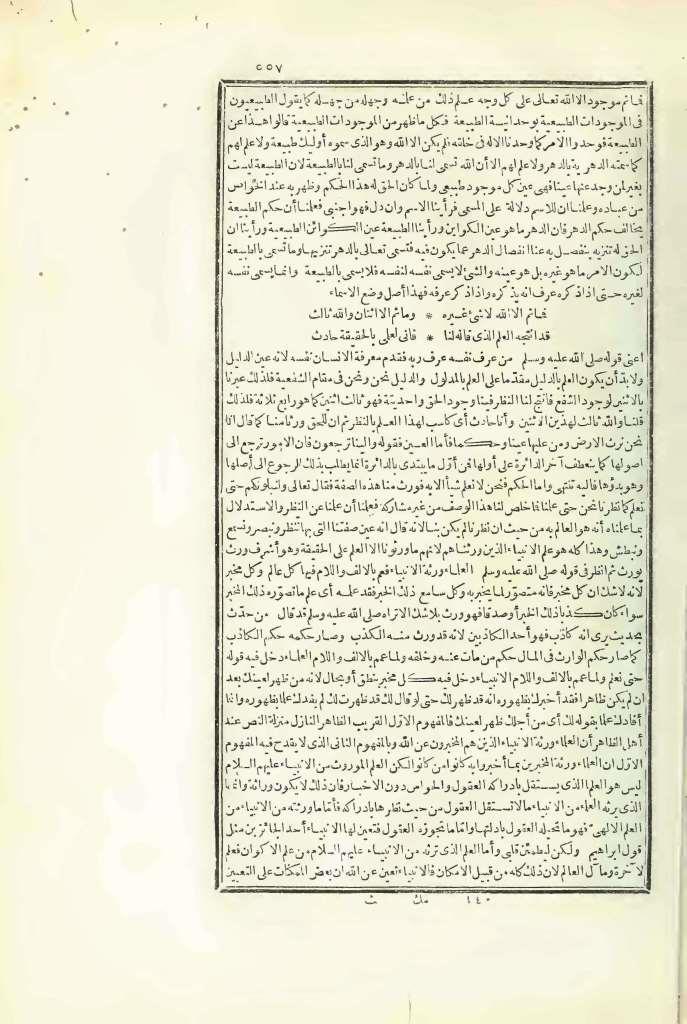 ٥٥٧
فما ثم موجود الا الله تعالى على كل وجه علم ذلك من علمه وجهله من جهله كما يقول الطبيعيون
فى الموجودات الطبيعية بوحدانية الطبيعة فكل ما ظهر من الموجودات الطبيعية قالوا هذا عن
الطبيعة فوحدوا الامر كما وحدنا الاله فى خلقه فلم يكن الا الله وهو الذى سموه أولئك طبيعة ولا علم لهم
كما سمته الدهرية بالدهر ولا علم لهم الا أن الله تسمى لنا بالدهر وما تسمى لنا بالطبيعة لان الطبيعة ليست
بغير لمن وجد عنها عينا فهى عين كل موجود طبيعى ولما كان الحق له هذا الحكم وظهر به عند الخواص
من عباده وعلمنا ان للاسم دلالة على المسمى فرأينا الاسم وان دل فهو اجنبى فعلمنا أن حكم الطبيعة
يخالف حكم الدهر فان الدهر ما هو عين الكوائن ورأينا الطبيعة عين الكوائن الطبيعية ورأينا ان
الحق له تنزيه ينفصل به عنا انفصال الدهر عما يكون فيه فتسمى تعالى بالدهر تنزيها وما تسمى بالطبيعة
لكون الامر ما هو غيره بل هو عينه والشئ لا يسمى نفسه لنفسه فلا يسمى بالطبيعة وانما يسمى نفسه
لغيره حتى اذا ذكره عرف انه يذكره واذا ذكر عرفه فهذا أصل وضع الاسماء
فما ثم الا الله لا شئ غيره * وما ثم الا اثنان والله ثالث
قد أنتجه العلم الذى قاله لنا * فانى لعلمى بالحقيقة حادث
اعنى قوله صلى الله عليه وسلم من عرف نفسه عرف ربه فقدم معرفة الانسان نفسه لانه عين الدليل
ولا بد أن يكون العلم بالدليل مقدما على العلم بالمدلول والدليل نحن ونحن فى مقام الشفعية فلذلك عبرنا
بالاثنين لوجود الشفع فانتج لنا النظر فينا وجود الحق واحديته فهو ثالث اثنين كما هو رابع ثلاثة فلذلك
قلنا والله ثالث لهذين الاثنين وأنا حادث أى كاسب لهذا العلم بالنظر ثم ان للحق ورثا منا كما قال انا
نحن نرث الارض ومن عليها عينا وحكما فأما العين فقوله والينا ترجعون فان الامور ترجع الى
اصولها كما ينعطف آخر الدائرة على أولها فمن أول ما يبتدى بالدائرة انما يطلب بذلك الرجوع الى أصلها
وهو بدؤها فاليه تنتهى واما الحكم فنحن لا نعلم شيأ الا به فورث منا هذه الصفة فقال تعالى ولنبلونكم حتى
نعلم كما نظرنا نحن حتى علمنا فما خلص لنا هذا الوصف من غير مشاركة فعلمنا أن علمنا عن النظر والاستدلال
بما علمناه أنه هو العالم به من حيث ان نظرنا لم يكن بنا لانه قال انه عين صفتنا التى بها ننظر ونبصر ونسمع
ونبطش وهذا كله هو علم الانبياء الذين ورثناهم لانهم ما ورثونا الا العلم على الحقيقة وهو أشرف ورث
يورث ثم انظر فى قوله صلى الله عليه وسلم العلماء ورثة الانبياء فعم بالالف واللام فيها كل عالم وكل مخبر
لانه لا شك ان كل مخبر فانه متصور لما يخبر به وكل سامع ذلك الخبر فقد علمه أى علم ما تصوره ذلك المخبر
سواء كان كذبا ذلك الخبر أو صدقا فهو ورث بلا شك الا تراه صلى الله عليه وسلم قد قال من حدث
بحديث يرى انه كاذب فهو أحد الكاذبين لانه قد ورث منه الكذب وصار حكمه حكم الكاذب
كما صار حكم الوارث فى المال حكم من مات عنه وخلفه ولما عم بالالف واللام العلماء دخل فيه قوله
حتى نعلم ولما عم بالالف واللام الانبياء دخل فيه كل مخبر بنطق أو بحال لانه من ظهر لعينك بعد
ان لم يكن ظاهرا فقد أخبرك بظهوره انه قد ظهر لك حتى لو قال لك قد ظهرت لك لم يفدك علما بظهوره وانما
أفادك علما بقوله لك أى من أجلك ظهر لعينك فالمفهوم الاول القريب الظاهر النازل منزلة النص عند
أهل الظاهر أن العلماء ورثة الانبياء الذين هم المخبرون عن الله وبالمفهوم الثانى الذى لا يقدح فيه المفهوم
الاول ان العلماء ورثة المخبرين بما أخبروا به كانوا من كانوا لكن العلم الموروث من الانبياء عليهم السلام
ليس هو العلم الذى يستقل بادراكه العقول والحواس دون الاخبار فان ذلك لا يكون وراثة وانما
الذى يرثه العلماء من الانبياء ما لا تستقل العقول من حيث نظرها بادراكه فأما ما ورثته من الانبياء من
العلم الالهى فهو ما تحيله العقول بادلتها واما ما تجوزه العقول فتعين لها الانبياء أحد الجائزين مثل
قول ابراهيم ولكن ليطمئن قلبى وأما العلم الذى ترثه من الانبياء عليهم السلام من علم الاكوان فعلم
الآخرة ومآل العالم لان ذلك كله من قبيل الامكان فالانبياء تعين عن الله ان بعض الممكنات على التعيين
١٤٠ مك ث